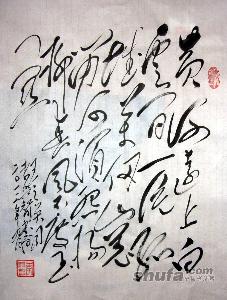 黄河远上白
云间一片孤
城万仞山羌
笛何须怨杨
柳春风不度玉
门关
shufa.com